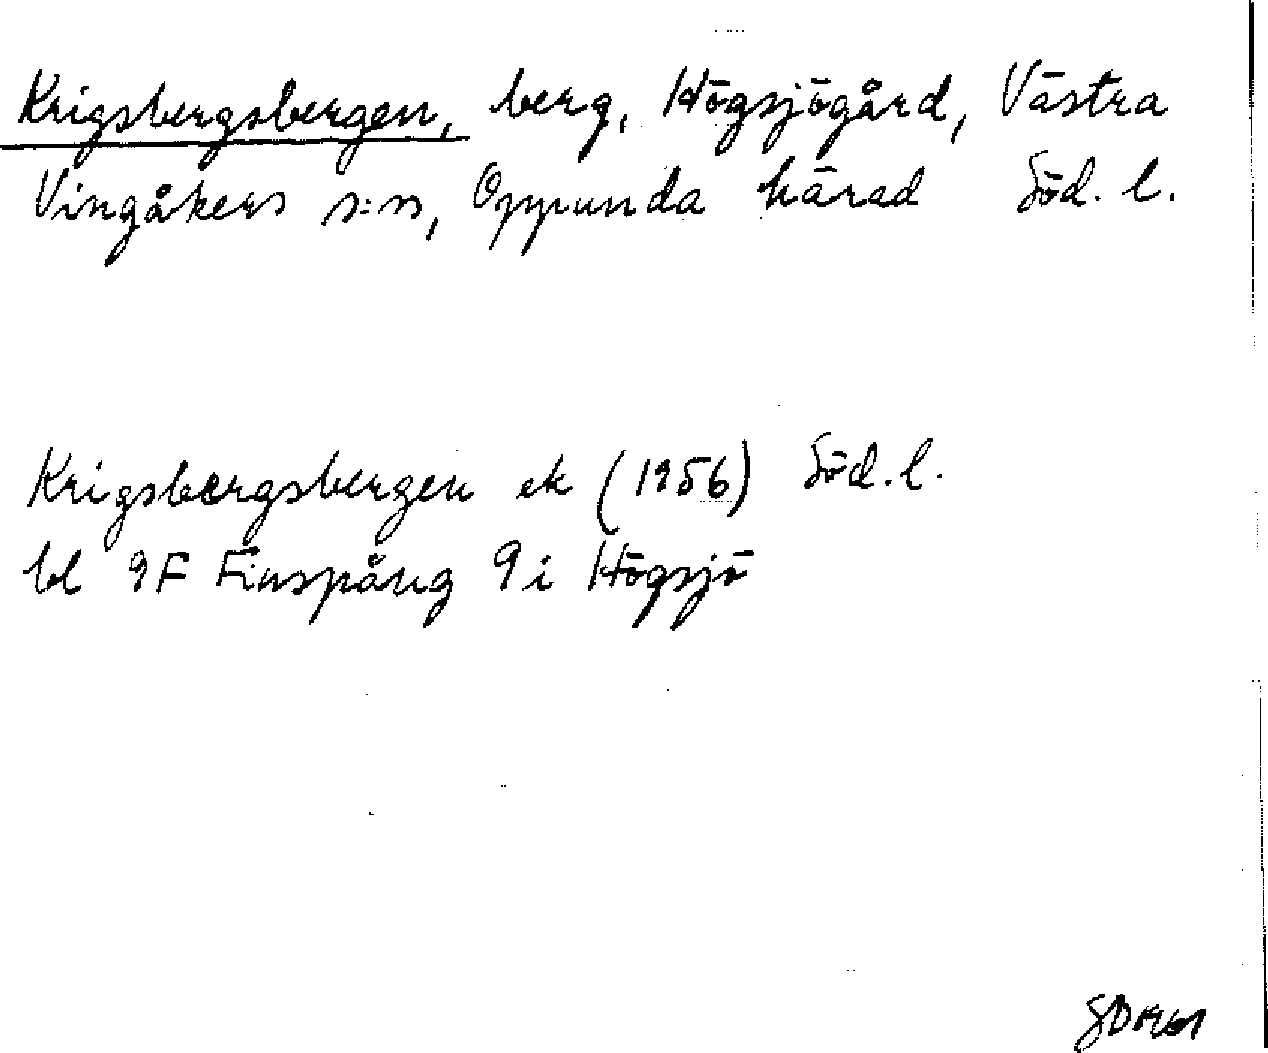 Krigsbergsbergen, berg, Högsjögård, Västra
Vingåkers s:n, Oppunda härad Söd. l.
Krigsbergsbergen ek (1956) Söd. l.
bl 9F Finspång 9i Högsjö